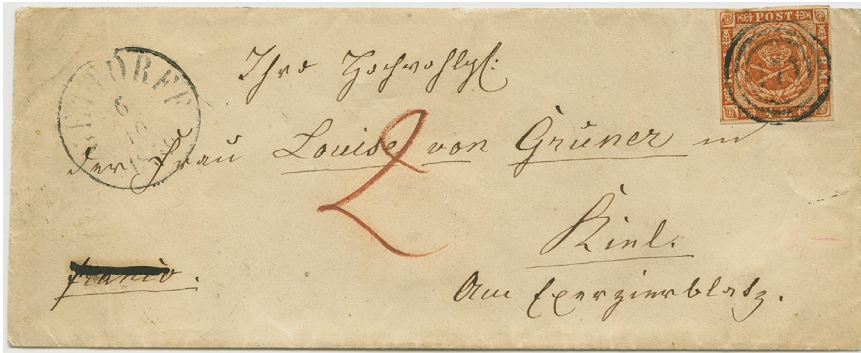 POST
6
Ihro Hochwohlgb:
der Frau Louise von Gruner in
2
Kiel.
franco.
Am Exerzierblatz.